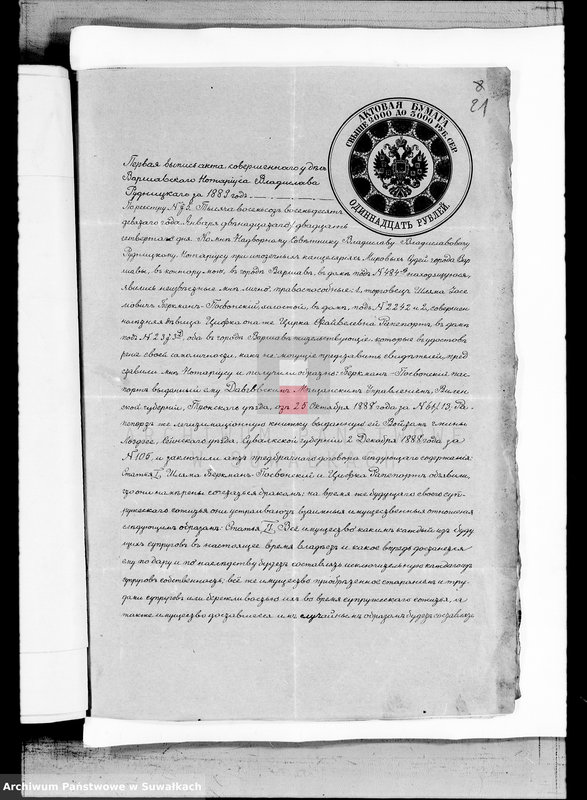 8
21
АКТОВАЯ БУМАГА
СВЫШЕ 2000 ДО 3000 РУБ. СЕР.
ОДИННАДЦАТЬ РУБЛЕЙ.
Первая выпись акта, совершеннаго у
Варшавскаго Нотаріуса Владислава
Рудницкаго за 1889 годъ
По реестру № 73. Тысяча восемьсотъ восемьдесятъ
девятаго года Января двѣнадцатаго / двадцать
четвертаго дня. Ко мнѣ Надворному Совѣтнику Владиславу Владиславовичу
Рудницкому, Нотаріусу при ипотечныхъ канцеляріяхъ Мировыхъ Судей города Вар
шавы, въ контору мою, въ городѣ Варшавѣ, въ домѣ подъ № 484 находящуюся,
явились неизвѣстные мнѣ лично, правоспособные: 1, торговецъ Шлема
мовичъ Беркманъ-Посвонскій, холостой, въ домѣ подъ № 2242 и 2, совершен
нолѣтняя дѣвица Ципка она же Цирка Файвелевна Рапепортъ въ домѣ
подъ № 23, оба въ городѣ Варшавѣ жительствующіе, которые въ удостовѣ
реніе своей самоличности, какъ не могущіе представить свидѣтелей, пред
ставили мнѣ Нотаріусу и получили обратно: Беркманъ-Посвонскій пас
портъ выданный ему Давговскимъ Мѣщанскимъ Управленіемъ, Вилен
ской губерніи, Трокскаго уѣзда, отъ 25 Октября 1888 года за № 61/13, Ра
попортъ же легитимаціонную книжку выданную ей Войтомъ гмины
Лоздзее, Сейнскаго уѣзда, Сувалкской губерніи 2 Декабря 1888 года за
№ 105, и заключили актъ предбрачнаго договора слѣдующаго содержанія:
Статья I. Шлема Беркманъ-Посвонскій и Ципка Рапепортъ объявили,
что они намѣрены сочетаться бракомъ; на время же будущаго своего суп
ружескаго сожитья они устраиваютъ взаимныя имущественныя отношенія
слѣдующимъ образомъ: Статья II. Всё имущество какимъ каждый изъ буду
щихъ супруговъ въ настоящее время владѣетъ и какое впредь достанется
ему по дару и по наслѣдству будетъ составлять исключительную каждаго изъ
супруговъ собственность; всё же имущество пріобрѣтенное стараніемъ и тру
дами супруговъ или бережливостью ихъ во время супружескаго сожитья, а
также имущество доставшееся имъ случайнымъ образомъ будетъ составлять
Archiwum Państwowe w Suwałkach